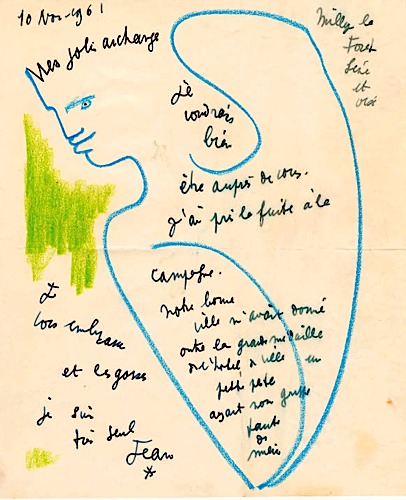 10 Nov-1961
Milly la
Foret
Seine
et
Oise
Mes jolis archange
Je
voudrais
bien
être auprès de vous.
J'ai pris la fuite à la
campagne.
Notre bonne
ville m'avait donné
outre la grande médaille
de l'hotel de ville un
petit
ayant mon grippe
faute
de
mieux
Je
vous embrasse
et les gosses
je suis
très seul
Jean
*